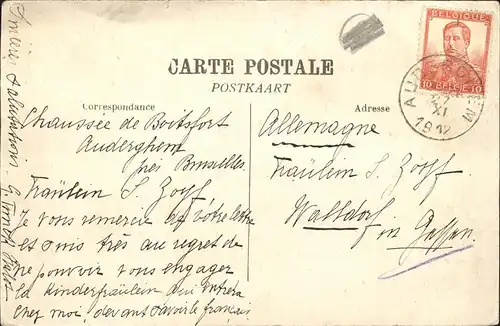 BELGIQUE
10 BELGIË 10
XI
1912
CARTE POSTALE
POSTKAART
Correspondance
Adresse
Chaussée de Boitsfort
Auderghem
près Bruxelles.
Fräulein S. Zopf
Je vous remercie de vôtre lettre
et suis très au regret de
ne pouvoir vous engager
la Kinderfräulein qui entrera
chez moi, devant savoir le français.
Allemagne
Fräulein S. Zopf
Walldorf
in Hessen.